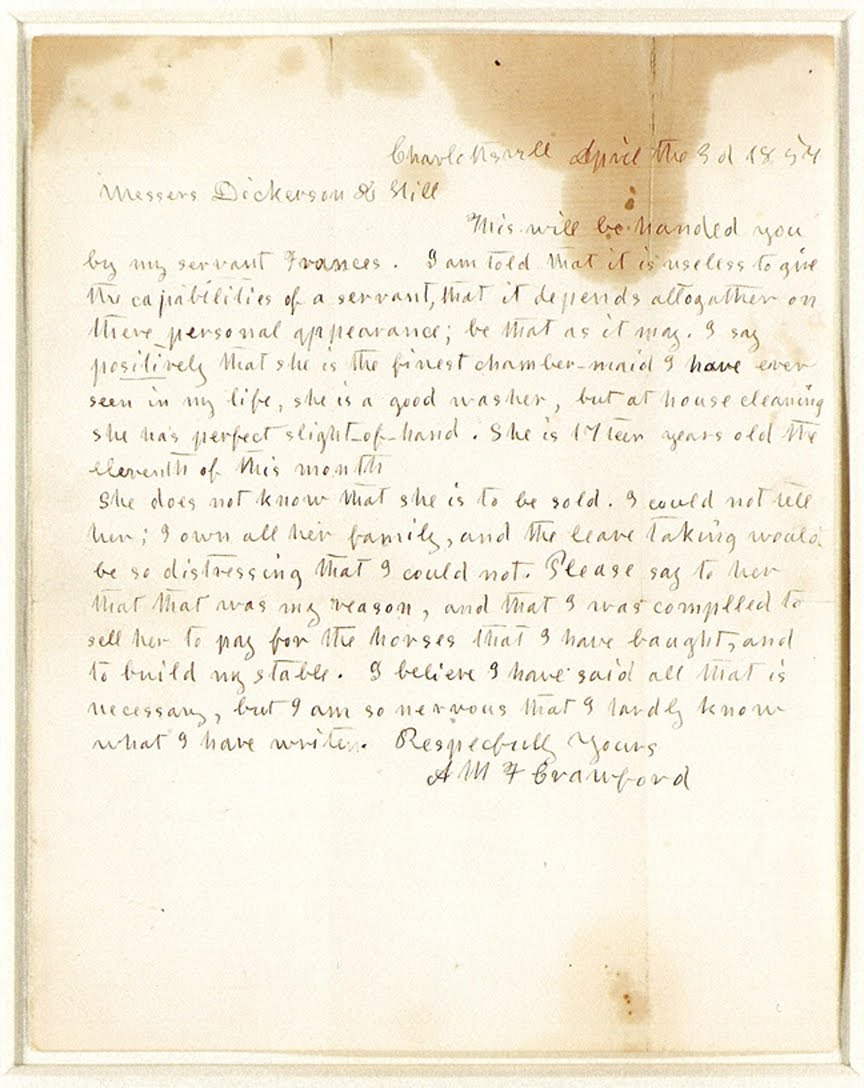 Charlottsvill April the 3d 1854
Messers Dickerson & Hill
This will be handed you
by my servant Frances. I am told that it is useless to give
the capabilities of a servant, that it depends altogather on
there personal appearance; be that as it may. I say
positively that she is the finest chamber-maid I have ever
seen in my life, she is a good washer, but at house cleaning
she has perfect slight-of-hand. She is 17teen years old the
eleventh of this month
She does not know that she is to be sold. I could not tell
her; I own all her family, and the leave taking would
be so distressing that I could not. Please say to her
that that was my reason, and that I was complled to
sell her to pay for the horses that I have baught, and
to build my stable. I believe I have said all that is
necessary, but I am so nervous that I hardly know
what I have writen. Respecfully Yours
A M F Crawford